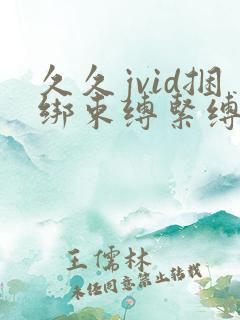 久久jvid捆
绑束缚緊缚
王儒林
未经同意禁止转载